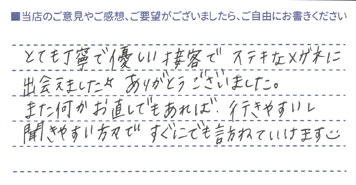 ■当店のご意見やご感想、ご要望がございましたら、ご自由にお書きください
とても丁寧で優しい接客で ステキなメガネに
出会えました☆ ありがとうございました。
また何かお直しでもあれば 行きやすいし
聞きやすい方々で すぐにでも訪ねていけます☺